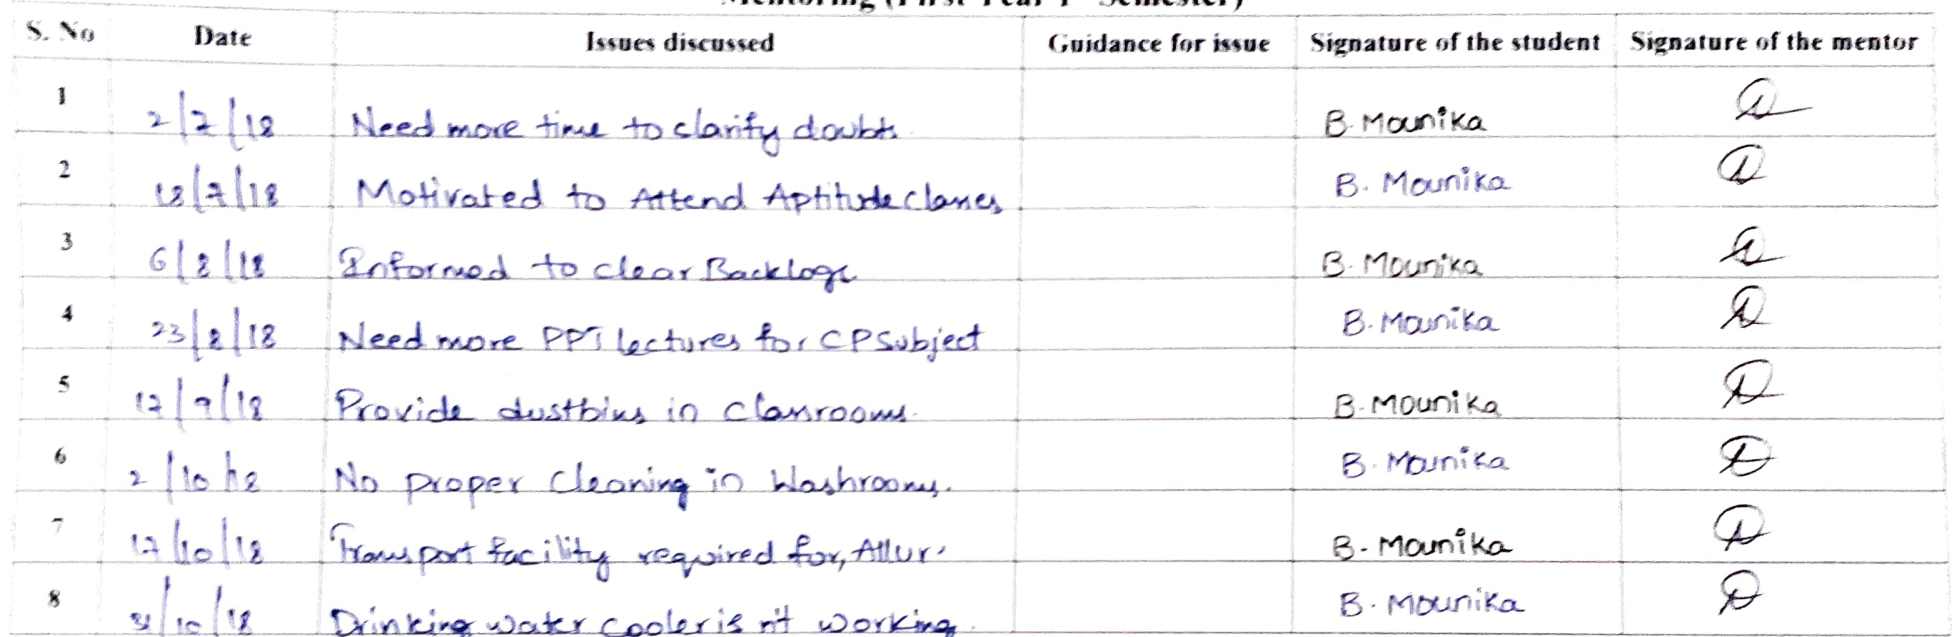 Mentoring (First Year 1st Semester)
S. No Date Issues discussed Guidance for issue Signature of the student Signature of the mentor
1 2/7/18 Need more time to clarify doubts. B. Mounika
2 18/7/18 Motivated to Attend Aptitude Classes B. Mounika
3 6/8/18 Informed to clear Backlogs B. Mounika
4 23/8/18 Need more PPT lectures for CP Subject B. Mounika
5 17/9/18 Provide dustbins in Classrooms. B. Mounika
6 2/10/18 No proper Cleaning in Washrooms. B. Mounika
7 17/10/18 Transport facility required for, Allur. B. Mounika
8 31/10/18 Drinking water cooler is n't working. B. Mounika